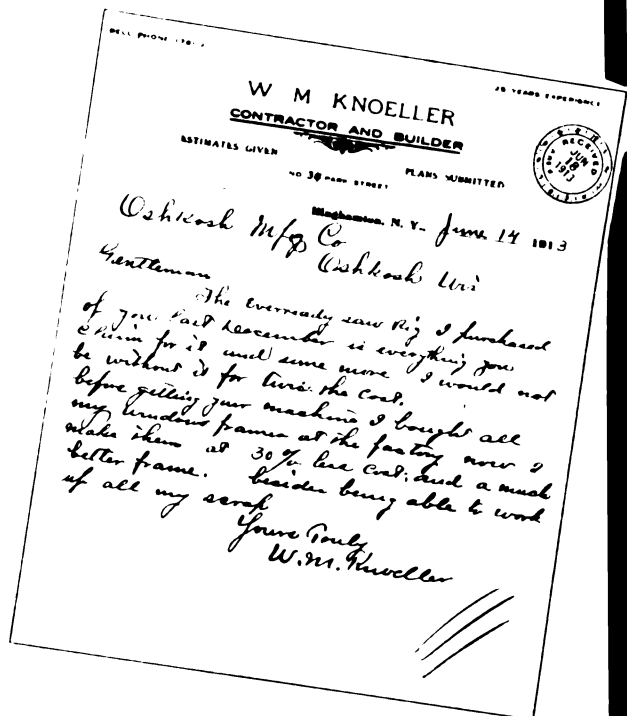 BELL PHONE
25 YEARS EXPERIENCE
W M KNOELLER
CONTRACTOR AND BUILDER
ESTIMATES GIVEN
PLANS SUBMITTED
NO. 30 PARK STREET
RECEIVED
JUN
18
1913
Binghamton, N. Y. June 14 1913
Oshkosh Mfg Co
Oshkosh Wis
Gentleman
The Everready saw Rig I purchased
of you last December is everything you
Claim for it and some more I would not
be without it for twice the cost.
before getting your machine I bought all
my windows frames at the factory now I
make them at 30% less cost. and a much
better frame. besides being able to work
up all my scrap
Yours Truly
W. M. Knoeller